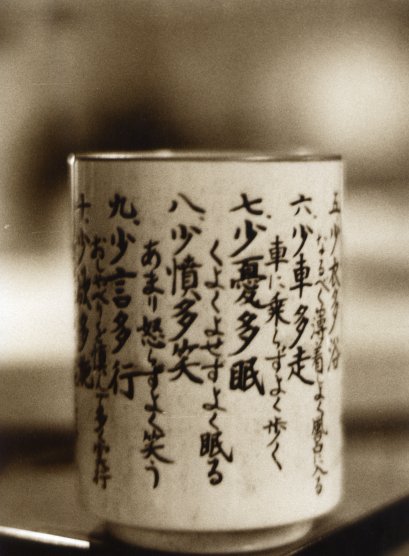 五、少衣多浴
なるべく薄着よく風呂に入る
六、少車多走
車に乗らずよく歩く
七、少憂多眠
くよくよせずよく眠る
八、少憤多笑
あまり怒らずよく笑う
九、少言多行
おしゃべりを慎
十、少欲多施